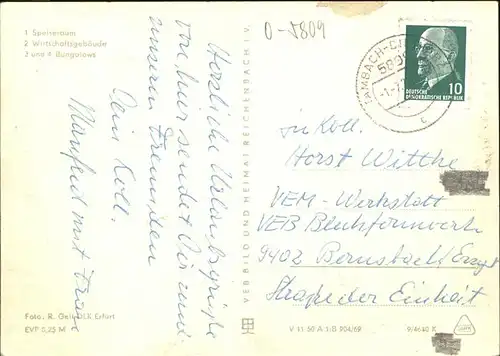 1 Speiseraum
2 Wirtschaftsgebäude
3 und 4 Bungalows
O-5809
TAMBACH-D
5809
c
DEUTSCHE
DEMOKRATISCHE REPUBLIK
10
Herzliche Urlaubsgrüße
von hier sendet Dir und
unseren Freunden
Dein Koll.
Manfred mit Frau
VEB BILD UND HEIMAT REICHENBACH I. V.
Koll.
Horst Witthe
VEM-Werkstatt
VEB Blechformwerk
9402 Bernsbach/Erzg
Straße der Einheit
Foto, R. DLK Erfurt
EVP 0,25 M
V 11 50 A 1/B 804/69
9/4640 K